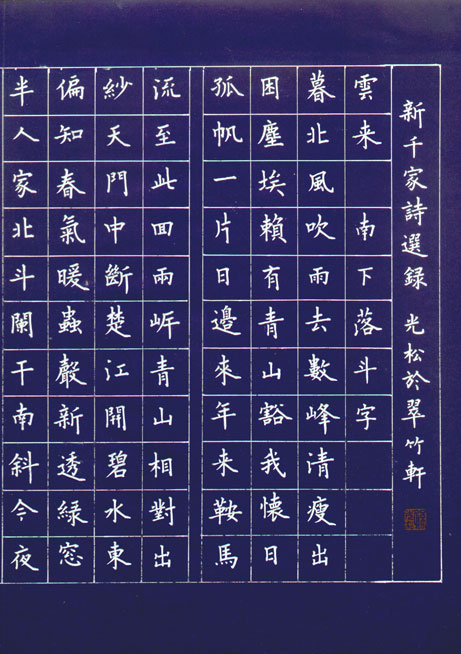 半人家北斗闌干南斜今夜
偏知春氣暖蟲聲新透緑窓
紗天門中斷楚江開碧水東
流至此囬兩岸青山相對出
孤帆一片日邊來年来鞍馬
困塵埃賴有青山豁我懷日
暮北風吹雨去數峰清瘦出
雲来 南下落斗字
新千家詩選録 光松於翠竹軒